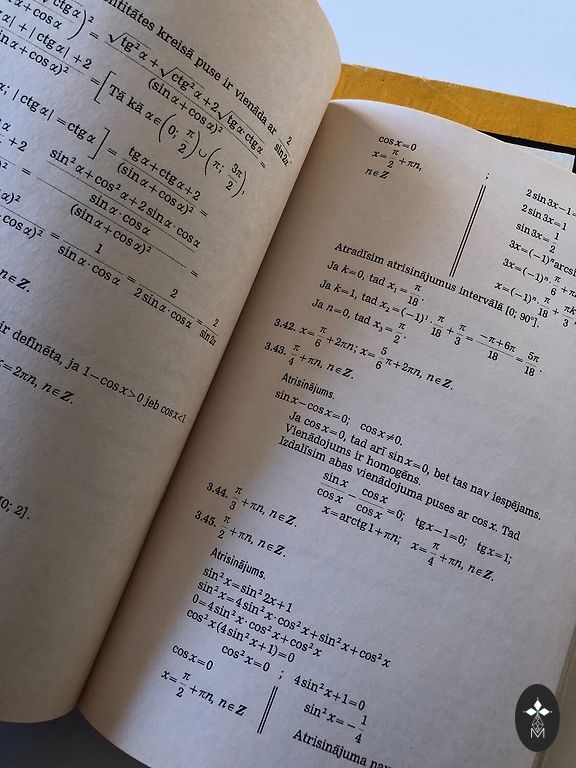 titātes kreisā puse ir vienāda ar 2/sin2α.
ctgα)² / α+cosα = √tg²α+√ctg²α+2√tgα ctgα / (sinα+cosα)² =
α|+|ctgα|+2 / (sinα+cosα)² = [Tā kā α∈(0; π/2)∪(π; 3π/2),
α; |ctgα|=ctgα] = tgα+ctgα+2 / (sinα+cosα)² =
sin²α+cos²α+2sinα·cosα / sinα·cosα / (sinα+cosα)² =
1 / sinα·cosα = 2 / 2sinα·cosα = 2 / sin2α
n∈Z.
ir definēta, ja 1−cosx>0 jeb cosx<1
x=2πn, n∈Z.
[0; 2].
cosx=0
x=π/2+πn,
n∈Z
;
2sin3x−1=
2sin3x=1
sin3x=1/2
3x=(−1)ⁿarcsi
3x=(−1)ⁿ·π/6+πn
x=(−1)ⁿ·π/18+πk/3
Atradīsim atrisinājumus intervālā [0; 90°].
Ja k=0, tad x₁=π/18.
Ja k=1, tad x₂=(−1)¹·π/18+π/3=−π+6π/18=5π/18.
Ja n=0, tad x₃=π/2.
3.42. x=π/6+2πn; x=5/6π+2πn, n∈Z.
3.43. π/4+πn, n∈Z.
Atrisinājums.
sinx−cosx=0; cosx≠0.
Ja cosx=0, tad arī sinx=0, bet tas nav iespējams.
Vienādojums ir homogēns.
Izdalīsim abas vienādojuma puses ar cosx. Tad
sinx/cosx−cosx/cosx=0; tgx−1=0; tgx=1;
x=arctg1+πn; x=π/4+πn, n∈Z.
3.44. π/3+πn, n∈Z.
3.45. π/2+πn, n∈Z.
Atrisinājums.
sin²x=sin²2x+1
sin²x=4sin²x·cos²x+sin²x+cos²x
0=4sin²x·cos²x+cos²x
cos²x(4sin²x+1)=0
cos²x=0 ; 4sin²x+1=0
cosx=0
x=π/2+πn, n∈Z
sin²x=−1/4
Atrisinājuma nav
M